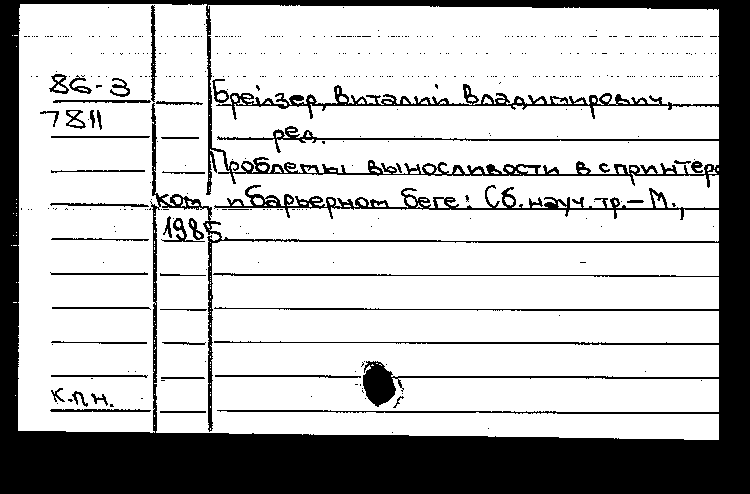 86-3
7811
Брейзер, Виталий Владимирович,
ред.
Проблемы выносливости в спринтерс
ком и барьерном беге: Сб. науч. тр. – М.,
1985.
к.п.н.